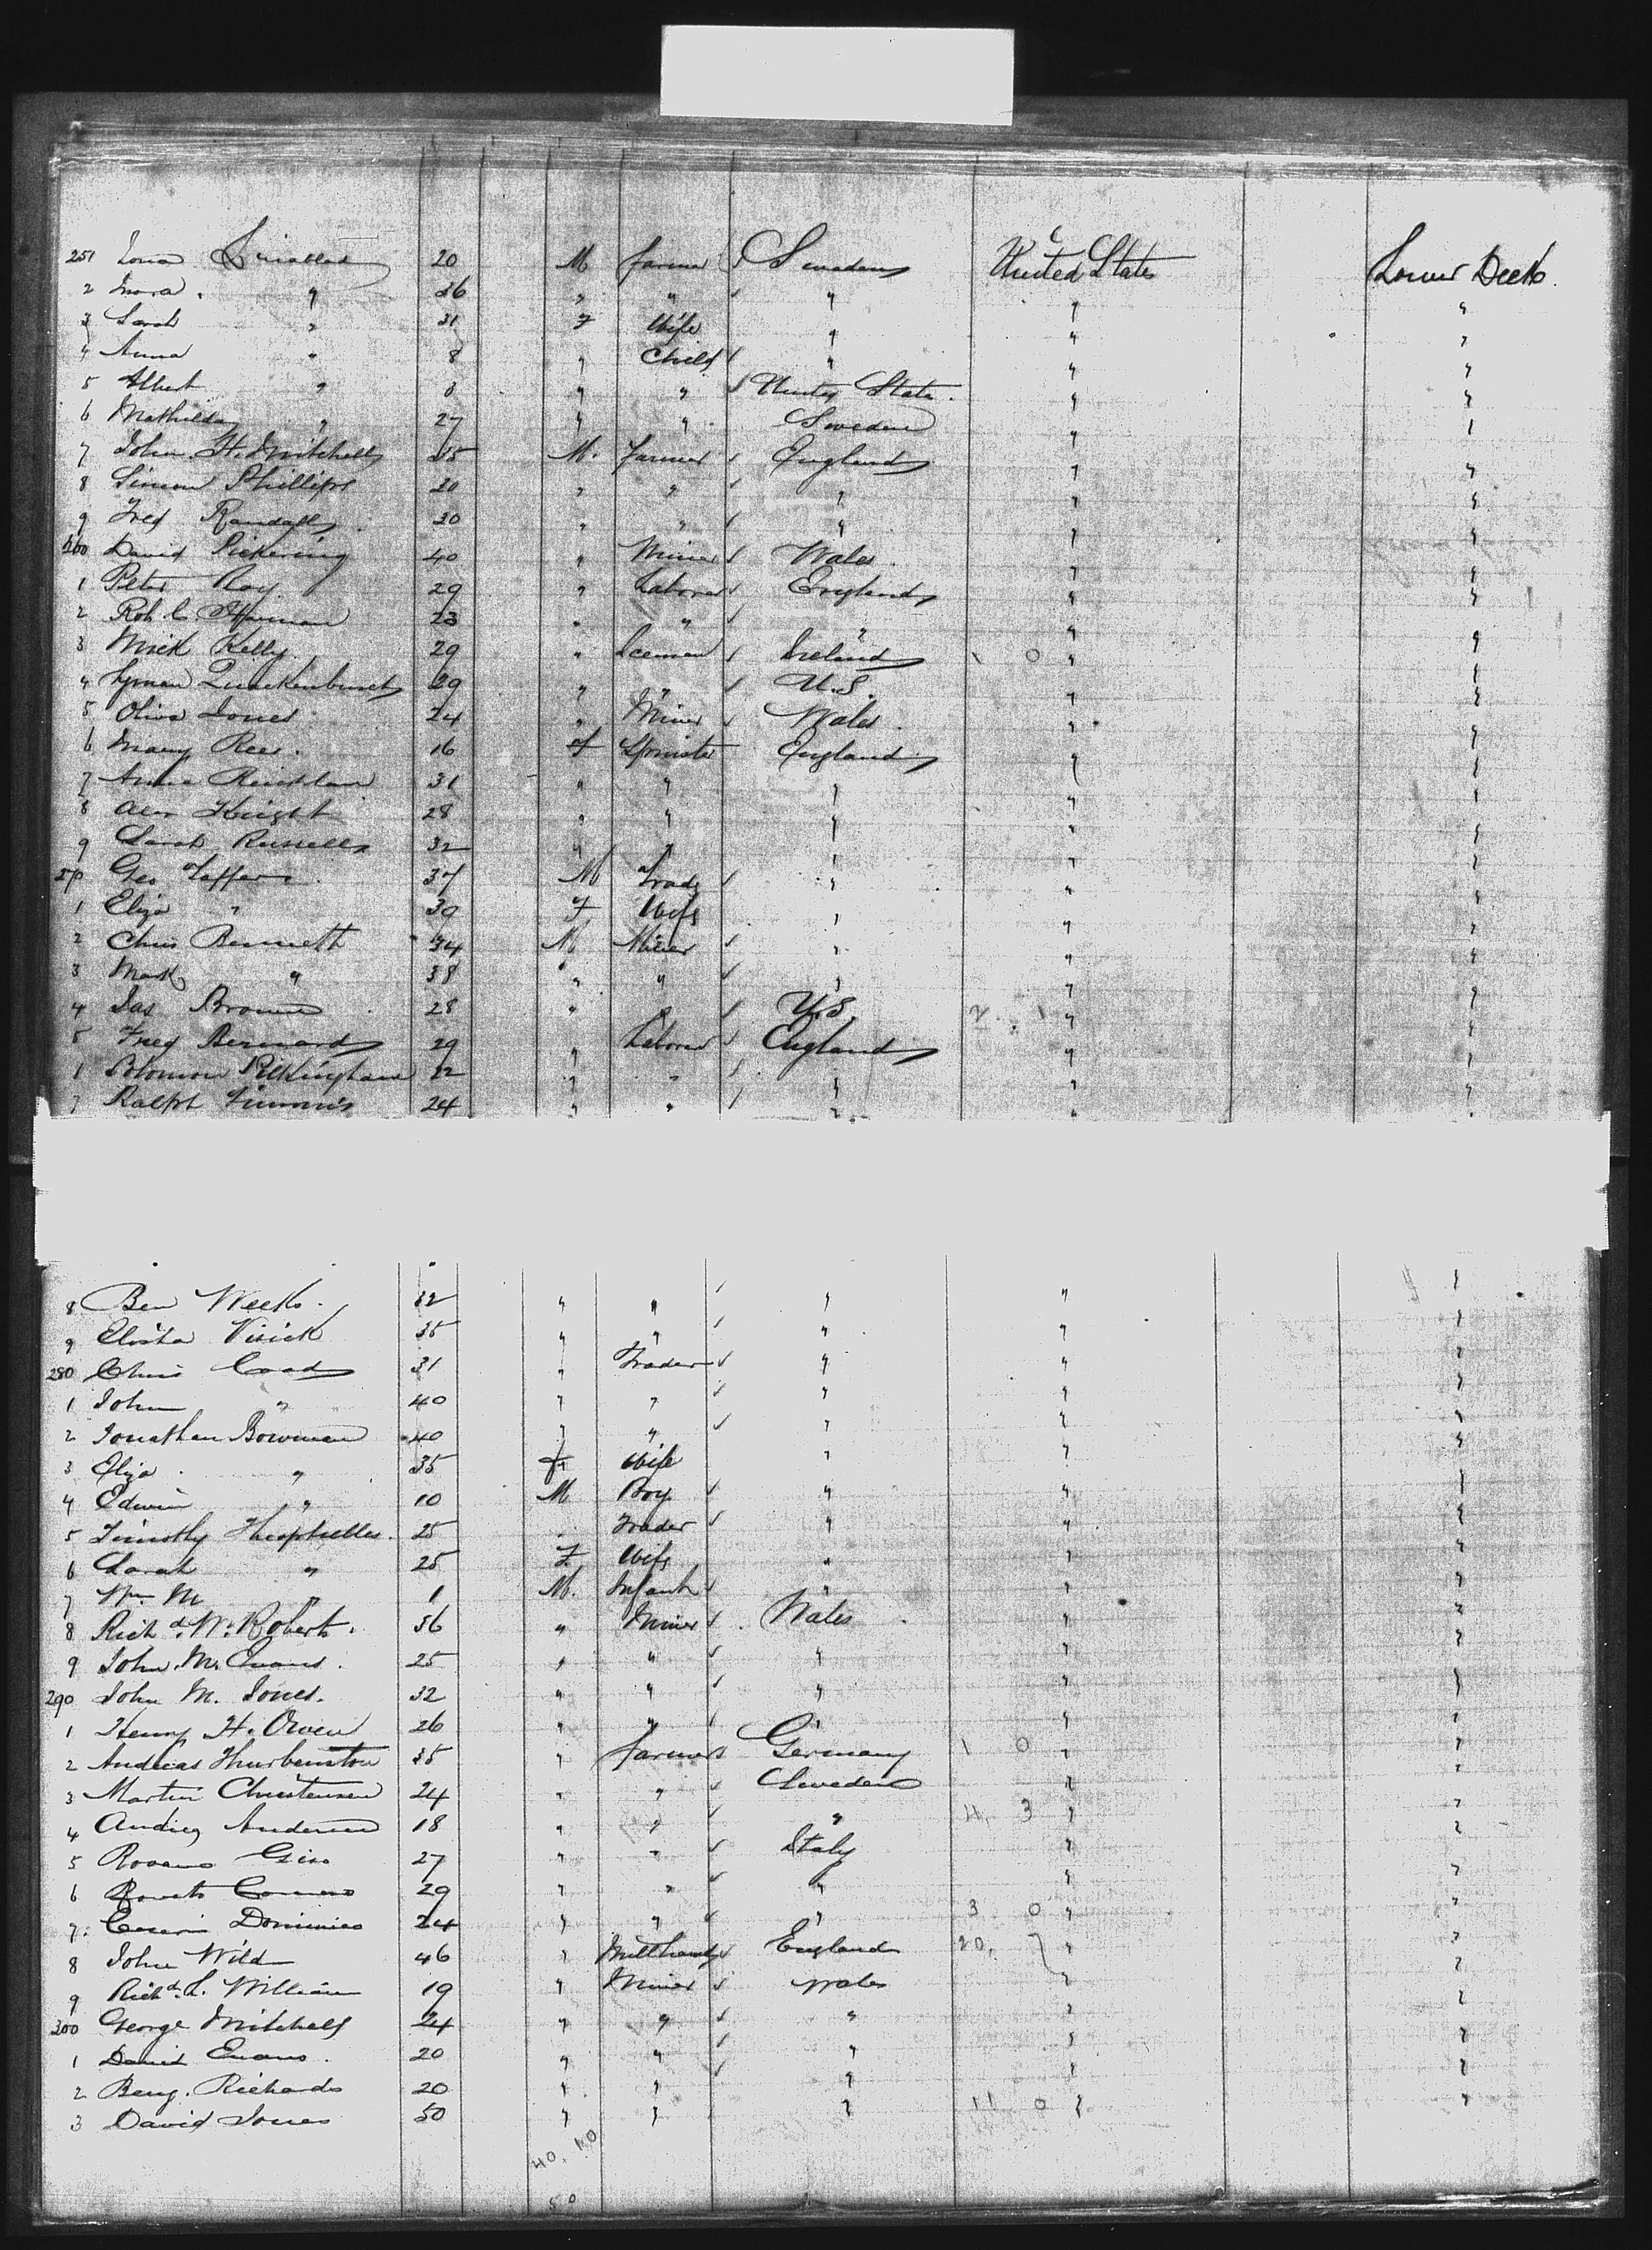 251 20 M farmer Sweden United States Lower Deck.
2 36 " " " " "
3 Sarah " 31 F Wife " " "
4 Anna " 8 " Child " " "
5 Albert " " " United State. " "
6 Mathilda " 27 " " Sweden " "
7 John. H. Mitchell 35 M. Farmer England " "
8 Simon Phillips 20 " " " " "
9 Fred Randall 30 " " " " "
260 David Pickering 40 " Miner Wales " "
1 Peter Roy 29 " Laborer England " "
2 Rob. C. 23 " " " " "
3 Mick Kelly 29 " Iceman Ireland 1 0 " "
4 Lyman Quackenbush 29 " " U.S. " "
5 Jones 24 " Miner Wales " "
6 Mary Rees. 16 F Spinster England " "
7 Annie 31 " " " " "
8 Knight 28 " " " " "
9 Sarah Russell 32 " " " " "
270 Geo 37 M Trade " " "
1 Eliza " 39 F Wife " " "
2 Chris Bennett 34 M Miner " " "
3 Mark " 38 " " " " "
4 Jas Brown 28 " " U.S. " "
5 Fred 29 " Laborer England " "
Solomon 22 " " " " "
7 Ralph 24 " " " " "
8 Ben Weeks. 32 " " " " "
9 Elisha 35 " " " " "
280 Chris Coad 31 " Trader " " "
1 John " 40 " " " " "
2 Jonathan Bowman 40 " " " " "
3 Eliza " 35 F Wife " " "
4 Edwin " 10 M Boy " " "
5 Timothy 25 " Trader " " "
6 Sarah " 25 F Wife " " "
7 Wm. M " 1 M. Infant " " "
8 Richd. W. Roberts. 36 " Miner Wales " "
9 John. M. Evans. 25 " " " " "
290 John M. Jones. 32 " " " " "
1 Henry H. Owen 26 " " " " "
2 Andreas 35 " farmer Germany 1 0 " "
3 Martin Christensen 24 " " Sweden " "
4 18 " " " 4 3 " "
5 27 " " Italy " "
6 29 " " " " "
7. 24 " " " 3 0 " "
8 John Wild 46 " Millhand England 20, " "
9 Richd. L. William 19 " Miner Wales " "
300 George Mitchell 24 " " " " "
1 David Evans. 20 " " " " "
2 Benj. Richards 20 " " " " "
3 David Jones 50 " " " 11 0 " "
40. 10
50